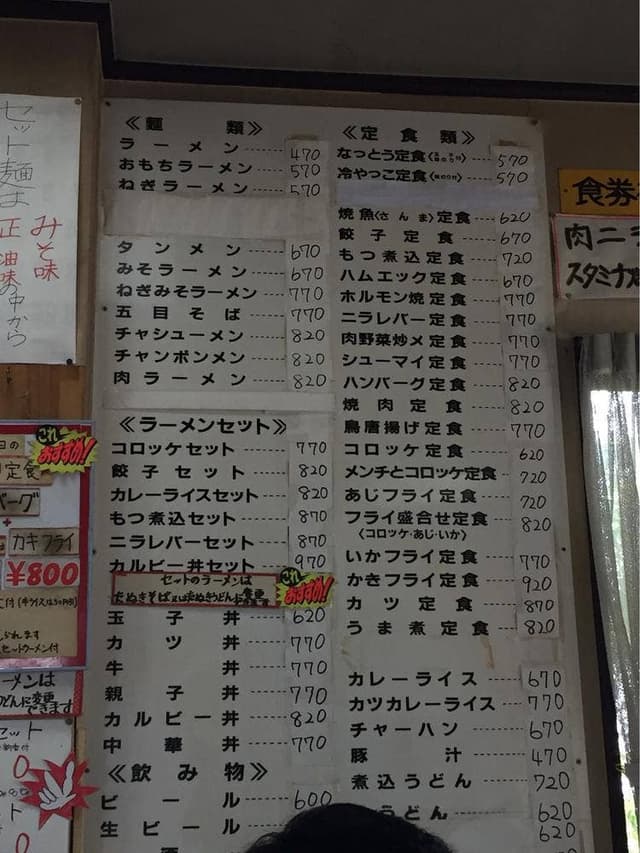 セット麺は
みそ味
正油味の中から
《麺類》
ラーメン 470
おもちラーメン 570
ねぎラーメン 570
タンメン 670
みそラーメン 670
ねぎみそラーメン 770
五目そば 770
チャシューメン 820
チャンポンメン 820
肉ラーメン 820
《ラーメンセット》
コロッケセット 770
餃子セット 820
カレーライスセット 820
もつ煮込セット 870
ニラレバーセット 870
カルビー丼セット 970
セットのラーメンは
たぬきそば又はたぬきうどんに変更
これおすすめ!
玉子丼 620
カツ丼 770
牛丼 770
親子丼 770
カルビー丼 820
中華丼 770
《飲み物》
ビール 600
生ビール
酒
《定食類》
なっとう定食 570
冷やっこ定食 570
焼魚(さんま)定食 620
餃子定食 670
もつ煮込定食 720
ハムエック定食 670
ホルモン焼定食 770
ニラレバー定食 770
肉野菜炒メ定食 770
シューマイ定食 770
ハンバーグ定食 820
焼肉定食 820
鳥唐揚げ定食 770
コロッケ定食 620
メンチとコロッケ定食 720
あじフライ定食 720
フライ盛合せ定食 820
(コロッケ・あじ・いか)
いかフライ定食 770
かきフライ定食 920
カツ定食 870
うま煮定食 820
カレーライス 670
カツカレーライス 770
チャーハン 670
豚汁 470
煮込うどん 720
うどん 620
620
食券
肉ニラ
スタミナ
これおすすめ!
定食
バーグ
+
カキフライ
¥800
セットラーメン付
ーメンは
どんに変更
できます
セット
0
ト
0